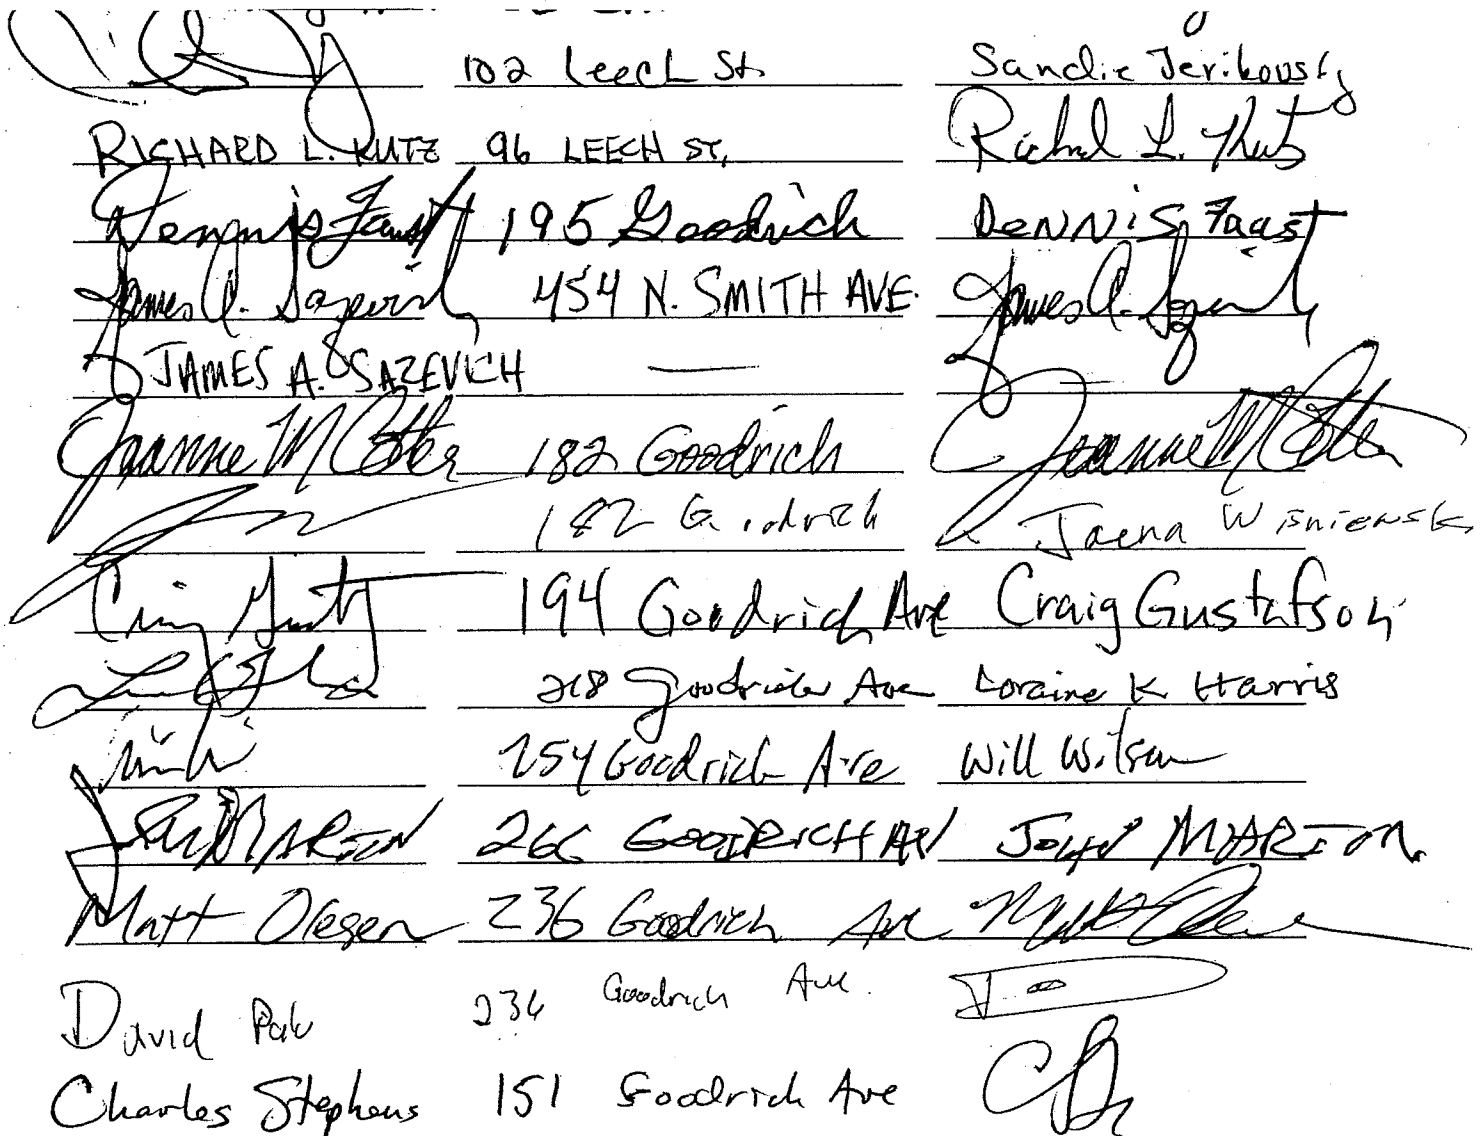 102 Leech St. Sandie Jerikovsky
RICHARD L. KUTZ 96 LEECH ST, Richard L. Kutz
Dennis Faust 195 Goodrich DENNIS Faast
James A. Sazevich 454 N. SMITH AVE. James A. Sazevich
JAMES A. SAZEVICH —
Jeanne M Cotter 182 Goodrich Jeanne M Cotter
182 Goodrich Jaena Wisniewski
Craig 194 Goodrich Ave Craig Gustafson
218 Goodrich Ave Loraine K Harris
254 Goodrich Ave Will Wilson
MARTIN 266 GOODRICH AV JOHN MARTIN
Matt Olesen 236 Goodrich Ave Matt Olesen
David Pak 236 Goodrich Ave.
Charles Stephens 151 Goodrich Ave